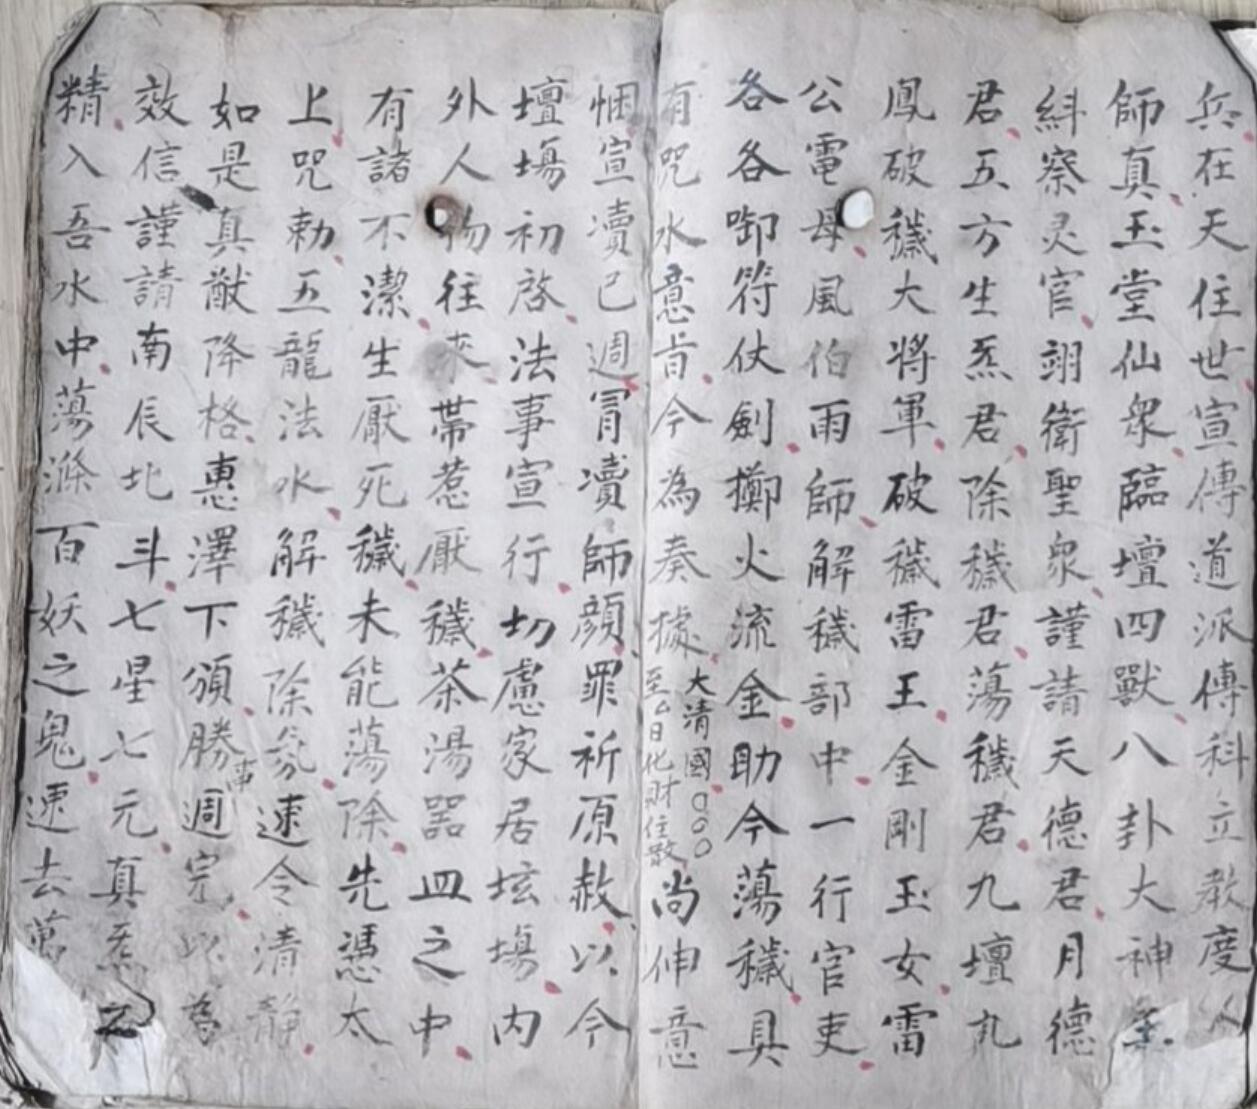 兵在天住世宣傳道派傳科立教度
師真玉堂仙衆臨壇四獸八卦大神
糾察灵官翊衛聖衆謹請天德君月德
君五方生炁君除穢君蕩穢君九壇
鳳破穢大將軍破穢雷王金剛玉女雷
公電母風伯雨師解穢部中一行官吏
各各啣符仗劍擲火流金助令蕩穢具
有咒水意旨今為奏據
大清國〇〇〇
至厶日化財住散
尚伸意
悃宣瀆已週冐瀆師顔罪祈原赦以今
壇塲初啓法事宣行切慮家居垓塲内
外人物往來帶惹厭穢茶湯噐皿之中
有諸不潔生厭死穢未能蕩除先憑太
上咒勅五龍法水解穢除氛速令清静
如是真猷降格惠澤下頒勝事週完以為
效信謹請南辰北斗七星七元真炁之
精入吾水中蕩滌百妖之鬼速去萬